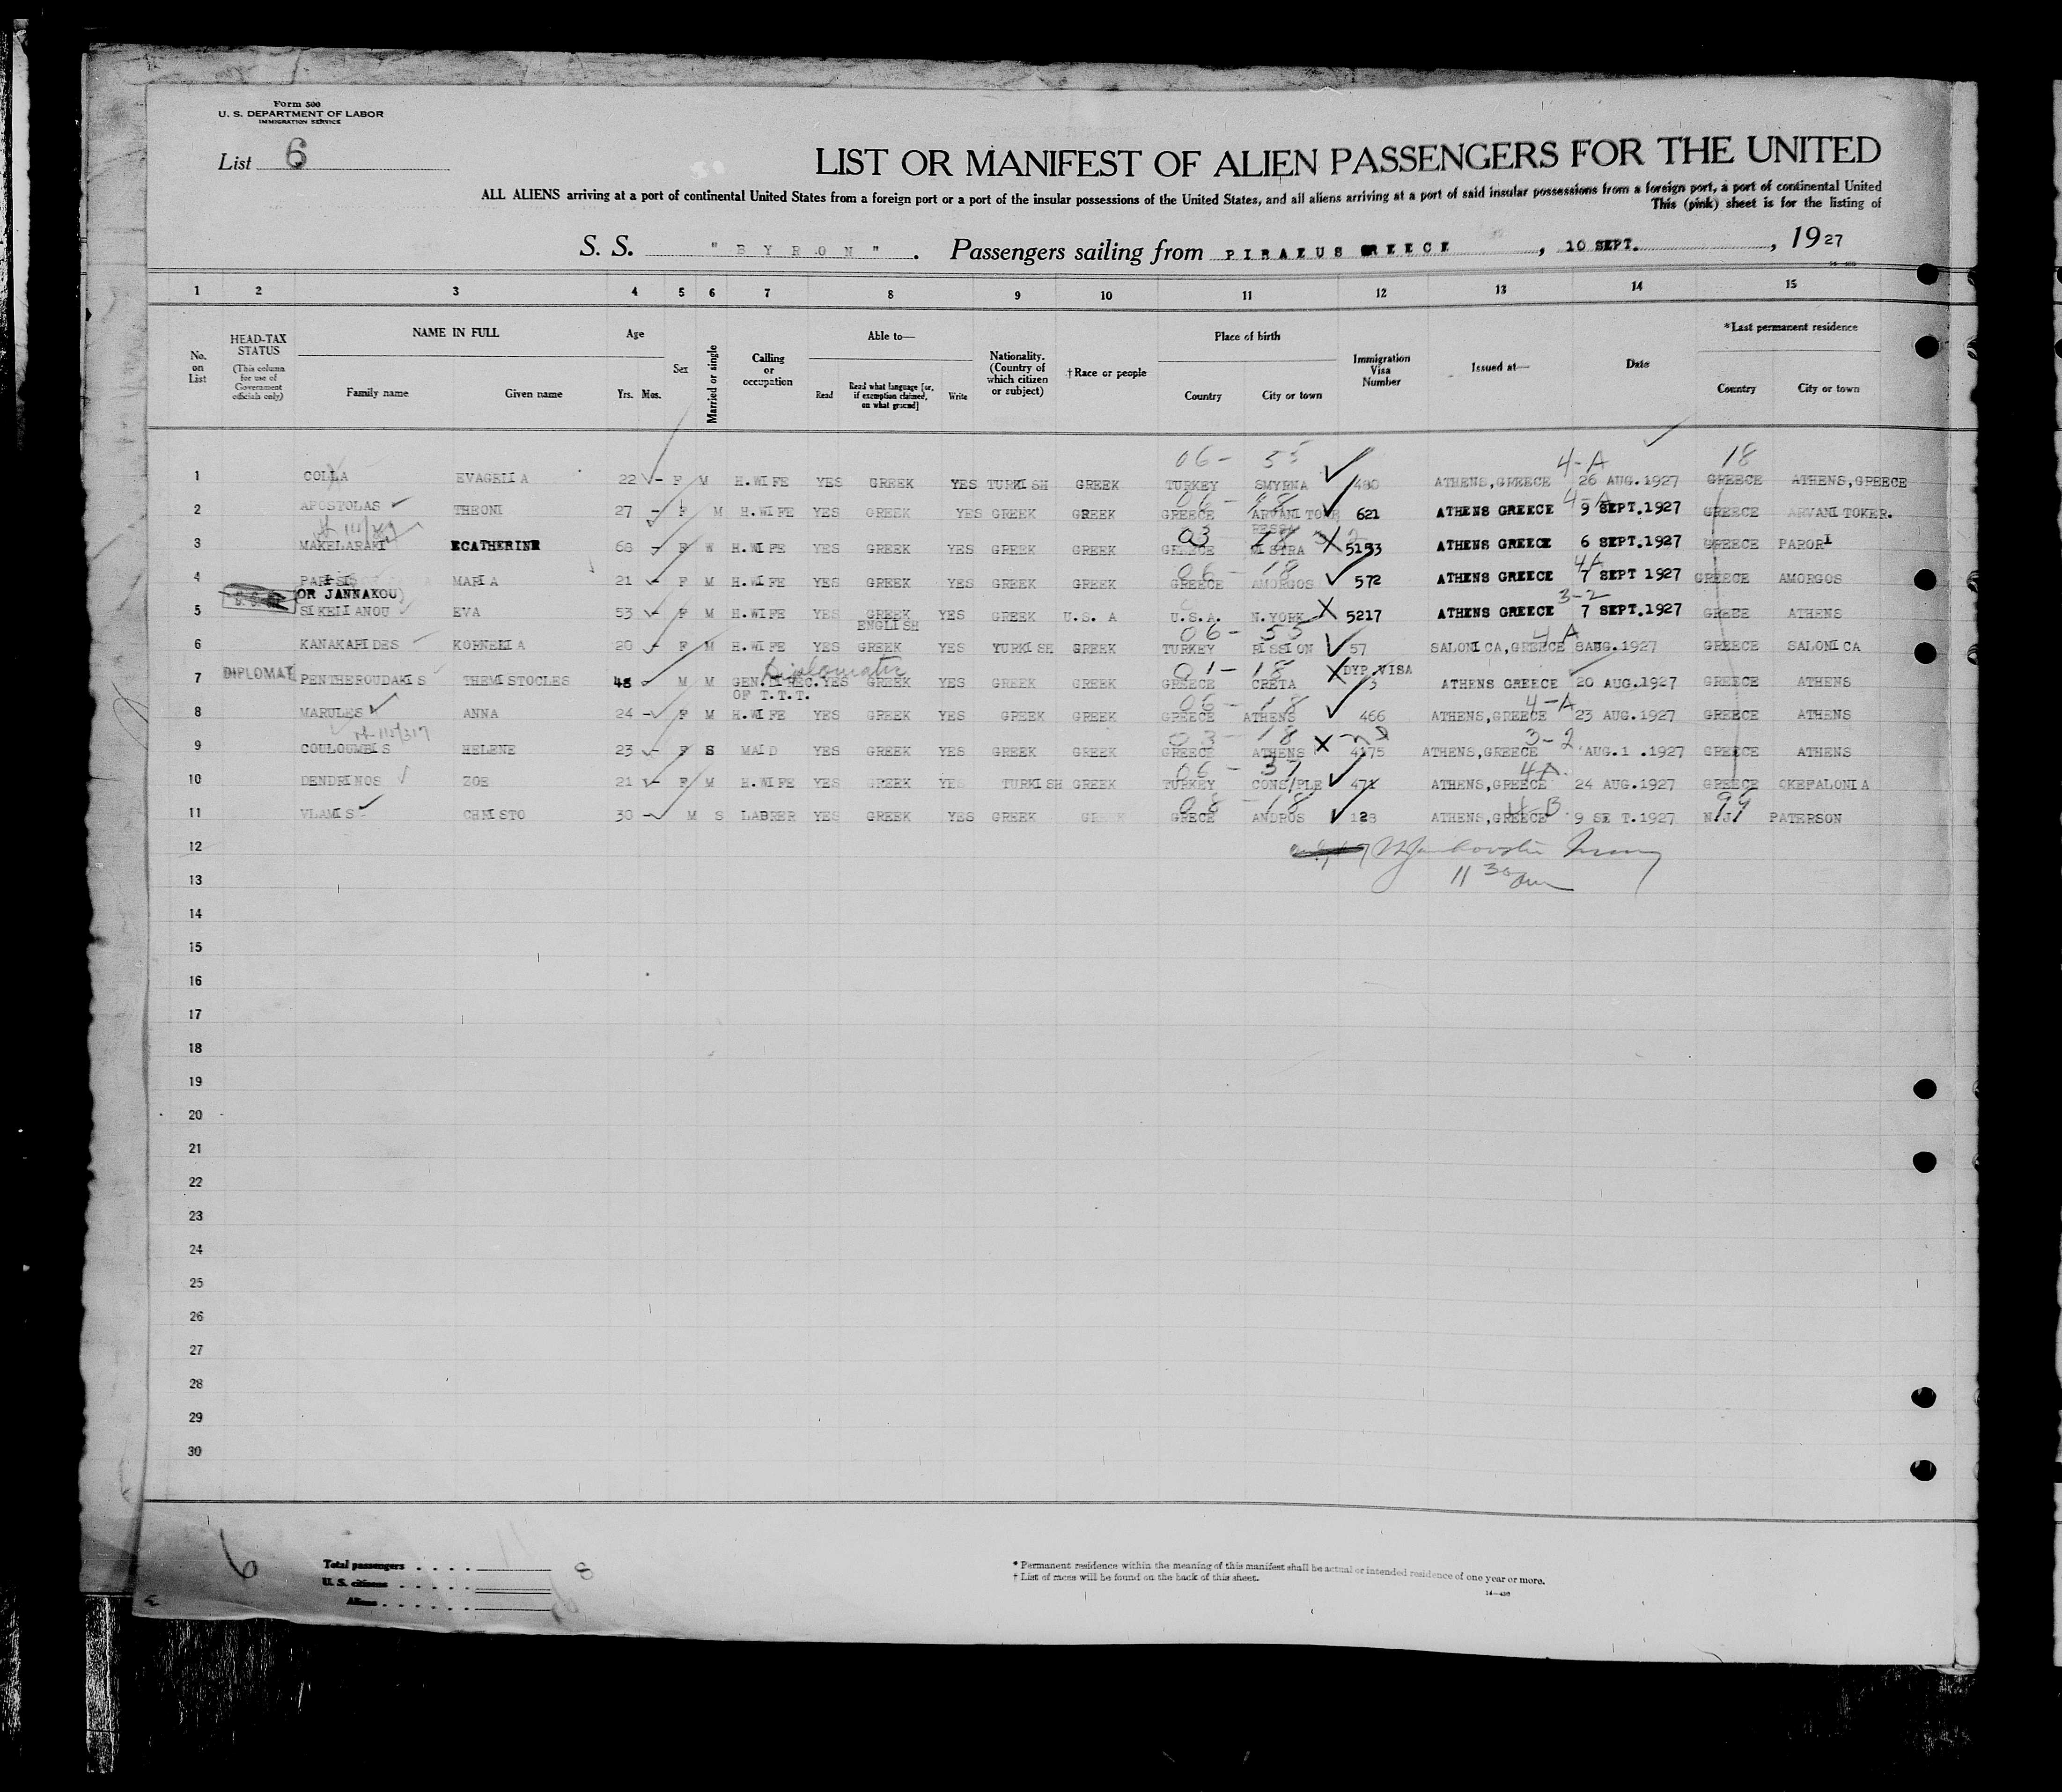 Form 500
U. S. DEPARTMENT OF LABOR
IMMIGRATION SERVICE
List 6
LIST OR MANIFEST OF ALIEN PASSENGERS FOR THE UNITED
ALL ALIENS arriving at a port of continental United States from a foreign port or a port of the insular possessions of the United States, and all aliens arriving at a port of said insular possessions from a foreign port, a port of continental United
This (pink) sheet is for the listing of
S. S. "BYRON". Passengers sailing from PIRAEUS GREECE, 10 SEPT., 1927
1 2 3 4 5 6 7 8 9 10 11 12 13 14 15
No. on List
HEAD-TAX STATUS (This column for use of Government officials only)
NAME IN FULL Family name Given name
Age Yrs. Mos.
Sex
Married or single
Calling or occupation
Able to— Read Read what language [or, if exemption claimed, on what ground] Write
Nationality. (Country of which citizen or subject)
†Race or people
Place of birth Country City or town
Immigration Visa Number
Issued at—
Date
*Last permanent residence Country City or town
06- 55 4-A 18
1 COLLA EVAGELIA 22 - F M H.WIFE YES GREEK YES TURKISH GREEK TURKEY SMYRNA 480 ATHENS,GREECE 26 AUG.1927 GREECE ATHENS,GREECE
06- 18 4-A
2 APOSTOLAS THEONI 27 - F M H.WIFE YES GREEK YES GREEK GREEK GREECE ARVANITOKE 621 ATHENS GREECE 9 SEPT.1927 GREECE ARVANITOKER.
03 18
3 MAKELARAKI ECATHERINE 68 - F W H.WIFE YES GREEK YES GREEK GREEK GREECE MISTRA 5193 ATHENS GREECE 6 SEPT.1927 GREECE PARORI
06- 18 4A
4 PARISIS MARIA 21 - F M H.WIFE YES GREEK YES GREEK GREEK GREECE AMORGOS 572 ATHENS GREECE 7 SEPT 1927 GREECE AMORGOS
OR JANNAKOU)
3-2
5 SIKELIANOU EVA 53 - F M H.WIFE YES GREEK YES GREEK U.S. A U.S.A. N.YORK 5217 ATHENS GREECE 7 SEPT.1927 GREECE ATHENS
ENGLISH
06- 55 4A
6 KANAKARIDES KORNELIA 20 - F M H.WIFE YES GREEK YES YURKISH GREEK TURKEY RISSION 57 SALONICA,GREECE 8AUG.1927 GREECE SALONICA
Diplomatic 01- 18 DYP.VISA
7 DIPLOMAT PENTHEROUDAKIS THEMISTOCLES 48 - M M GEN.DIREC. YES GREEK YES GREEK GREEK GREECE CRETA 3 ATHENS GREECE 20 AUG.1927 GREECE ATHENS
OF T.T.T.
06- 18 4-A
8 MARULES ANNA 24 - F M H.WIFE YES GREEK YES GREEK GREEK GREECE ATHENS 466 ATHENS,GREECE 23 AUG.1927 GREECE ATHENS
03- 18 3-2
9 COULOUMBIS HELENE 23 - F S MAID YES GREEK YES GREEK GREEK GREECE ATHENS 4175 ATHENS,GREECE AUG.1 .1927 GREECE ATHENS
06- 37 4A.
10 DENDRINOS ZOE 21 - F M H.WIFE YES GREEK YES TURKISH GREEK TURKEY CONS/PLE 471 ATHENS,GREECE 24 AUG.1927 GREECE CKEFALONIA
08-18 4-B 99
11 VLAMIS CHRISTO 30 - M S LABRER YES GREEK YES GREEK GREEK GRECE ANDROS 123 ATHENS,GREECE 9 SE T.1927 N.J. PATERSON
12
13 11 30 am
14
15
16
17
18
19
20
21
22
23
24
25
26
27
28
29
30
6
Total passengers 8
U. S. citizens
Aliens
* Permanent residence within the meaning of this manifest shall be actual or intended residence of one year or more.
† List of races will be found on the back of this sheet.